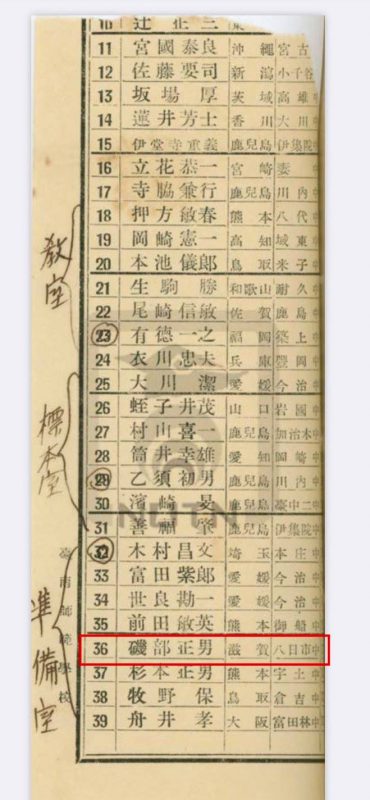 10 辻 正三
11 宮國泰良 沖繩 宮古
12 佐藤要司 新潟 小千谷
13 坂場厚 茨城 高雄中
14 蓮井芳士 香川 大川中
15 伊堂寺重義 鹿兒島 伊集院中
16 立花恭一 宮崎 中
17 寺脇兼行 鹿兒島 川内中
18 押方敏春 熊本 八代中
19 岡崎憲一 高知 城東中
20 本池儀郎 鳥取 米子中
21 生駒勝 和歌山 耐久中
22 尾崎信敏 佐賀 鹿島中
23 有德一之 福岡 築上中
24 衣川忠夫 兵庫 豐岡中
25 大川潔 愛媛 今治中
26 蛭子井茂 山口 岩國中
27 村山喜一 鹿兒島 加治木中
28 筒井幸雄 愛知 岡崎中
29 乙須初男 鹿兒島 川内中
30 濱崎晏 鹿兒島 臺中二中
31 善福肇 鹿兒島 伊集院中
32 木村昌文 埼玉 本庄中
33 富田紫郎 愛媛 今治中
34 世良勘一 愛媛 今治中
35 前田敏英 熊本 御船中
36 磯部正男 滋賀 八日市中
37 杉本正男 熊本 宇土中
38 牧野保 鳥取 倉吉中
39 舟井孝 大阪 富田林中
教室
標本室
準備室
臺南師範學校
NUTN